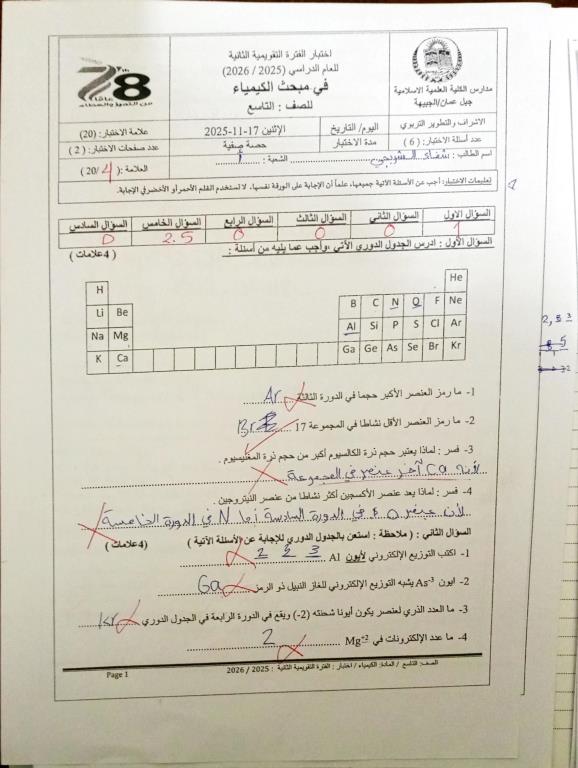 اختبار الفترة التقويمية الثانية
للعام الدراسي (2025 / 2026)
في مبحث الكيمياء
للصف : التاسع
78
عامًا
من التميز والعطاء
مدارس الكلية العلمية الاسلامية
جبل عمان/الجبيهة
الاشراف والتطوير التربوي
اليوم/ التاريخ
الإثنين 17-11-2025
علامة الاختبار: (20)
عدد أسئلة الاختبار: ( 6 )
مدة الاختبار
حصة صفية
عدد صفحات الاختبار: ( 2 )
اسم الطالب:
الشعبة : أ
العلامة: ( 4 /20)
تعليمات الاختبار: أجب عن الأسئلة الآتية جميعها، علماً أن الإجابة على الورقة نفسها، لا تستخدم القلم الأحمر أو الأخضر في الإجابة.
السؤال الاول السؤال الثاني السؤال الثالث السؤال الرابع السؤال الخامس السؤال السادس
1 0 0 0 2.5 0
السؤال الأول : ادرس الجدول الدوري الآتي ،وأجب عما يليه من أسئلة : ( 4علامات )
H He
Li Be B C N O F Ne
Na Mg Al Si P S Cl Ar
K Ca Ga Ge As Se Br Kr
1- ما رمز العنصر الأكبر حجما في الدورة الثالثة Ar
2- ما رمز العنصر الأقل نشاطا في المجموعة 17 Br
3- فسر : لماذا يعتبر حجم ذرة الكالسيوم أكبر من حجم ذرة المغنيسيوم .
لأنه Ca آخر عنصر في المجموعة
4- فسر : لماذا يعد عنصر الأكسجين أكثر نشاطا من عنصر النيتروجين .
لأن عنصر O في الدورة السادسة أما N في الدورة الخامسة
السؤال الثاني : ( ملاحظة : استعن بالجدول الدوري للإجابة عن الأسئلة الآتية ) (4علامات )
1- اكتب التوزيع الإلكتروني لأيون Al 2 2 3
2- ايون As-3 يشبه التوزيع الإلكتروني للغاز النبيل ذو الرمز Ga
3- ما العدد الذري لعنصر يكون أيونا شحنته (2-) ويقع في الدورة الرابعة في الجدول الدوري Kr
4- ما عدد الإلكترونات في Mg+2 2
الصف: التاسع / المادة: الكيمياء / اختبار : الفترة التقويمية الثانية : 2025 / 2026
Page 1